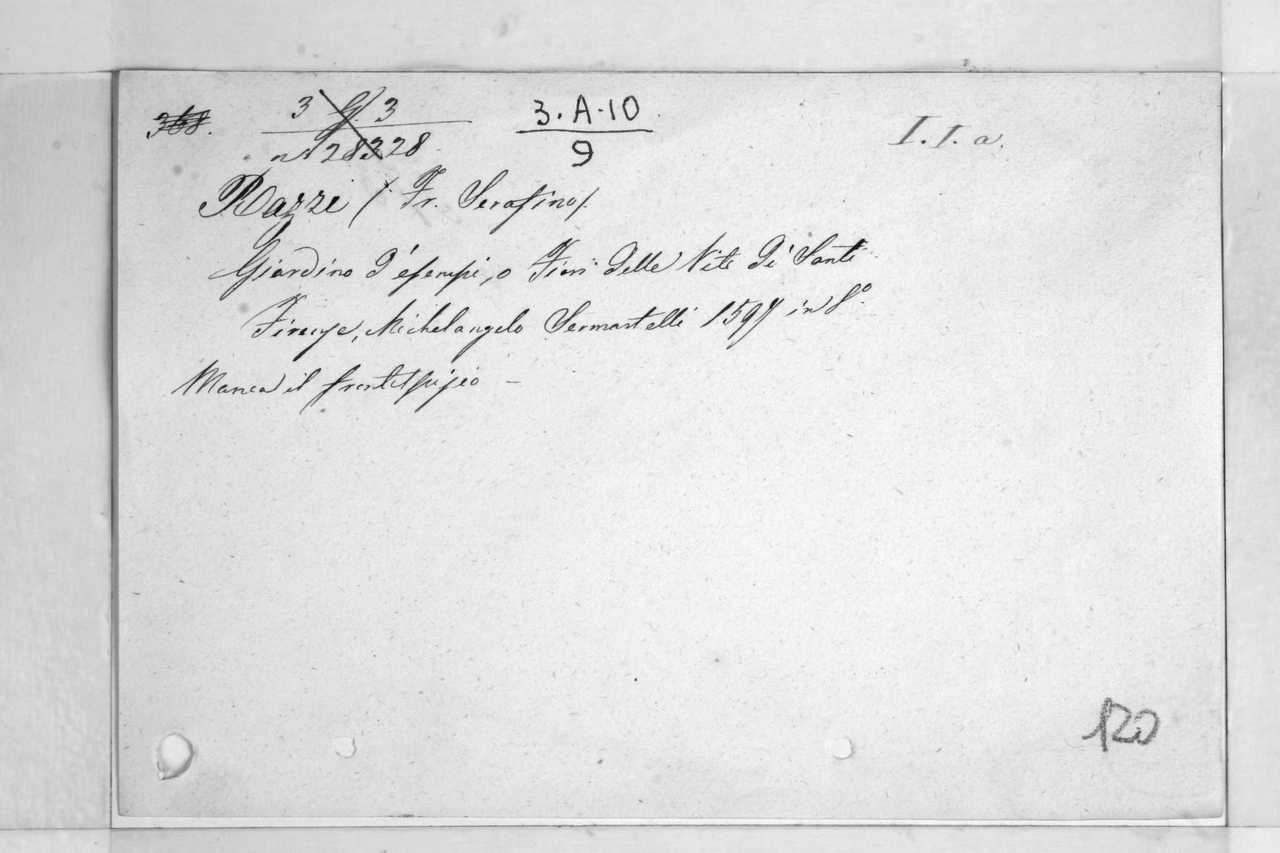 368.
3 G. 3
n.º 28328
3.A.10
9
I.I.a.
Razzi (Fr. Serafino)
Giardino d'esempi, o Fiori delle Vite de' Santi
Firenze, Michelangelo Sermartelli 1597 in 8º.
Manca il frontespizio –
120